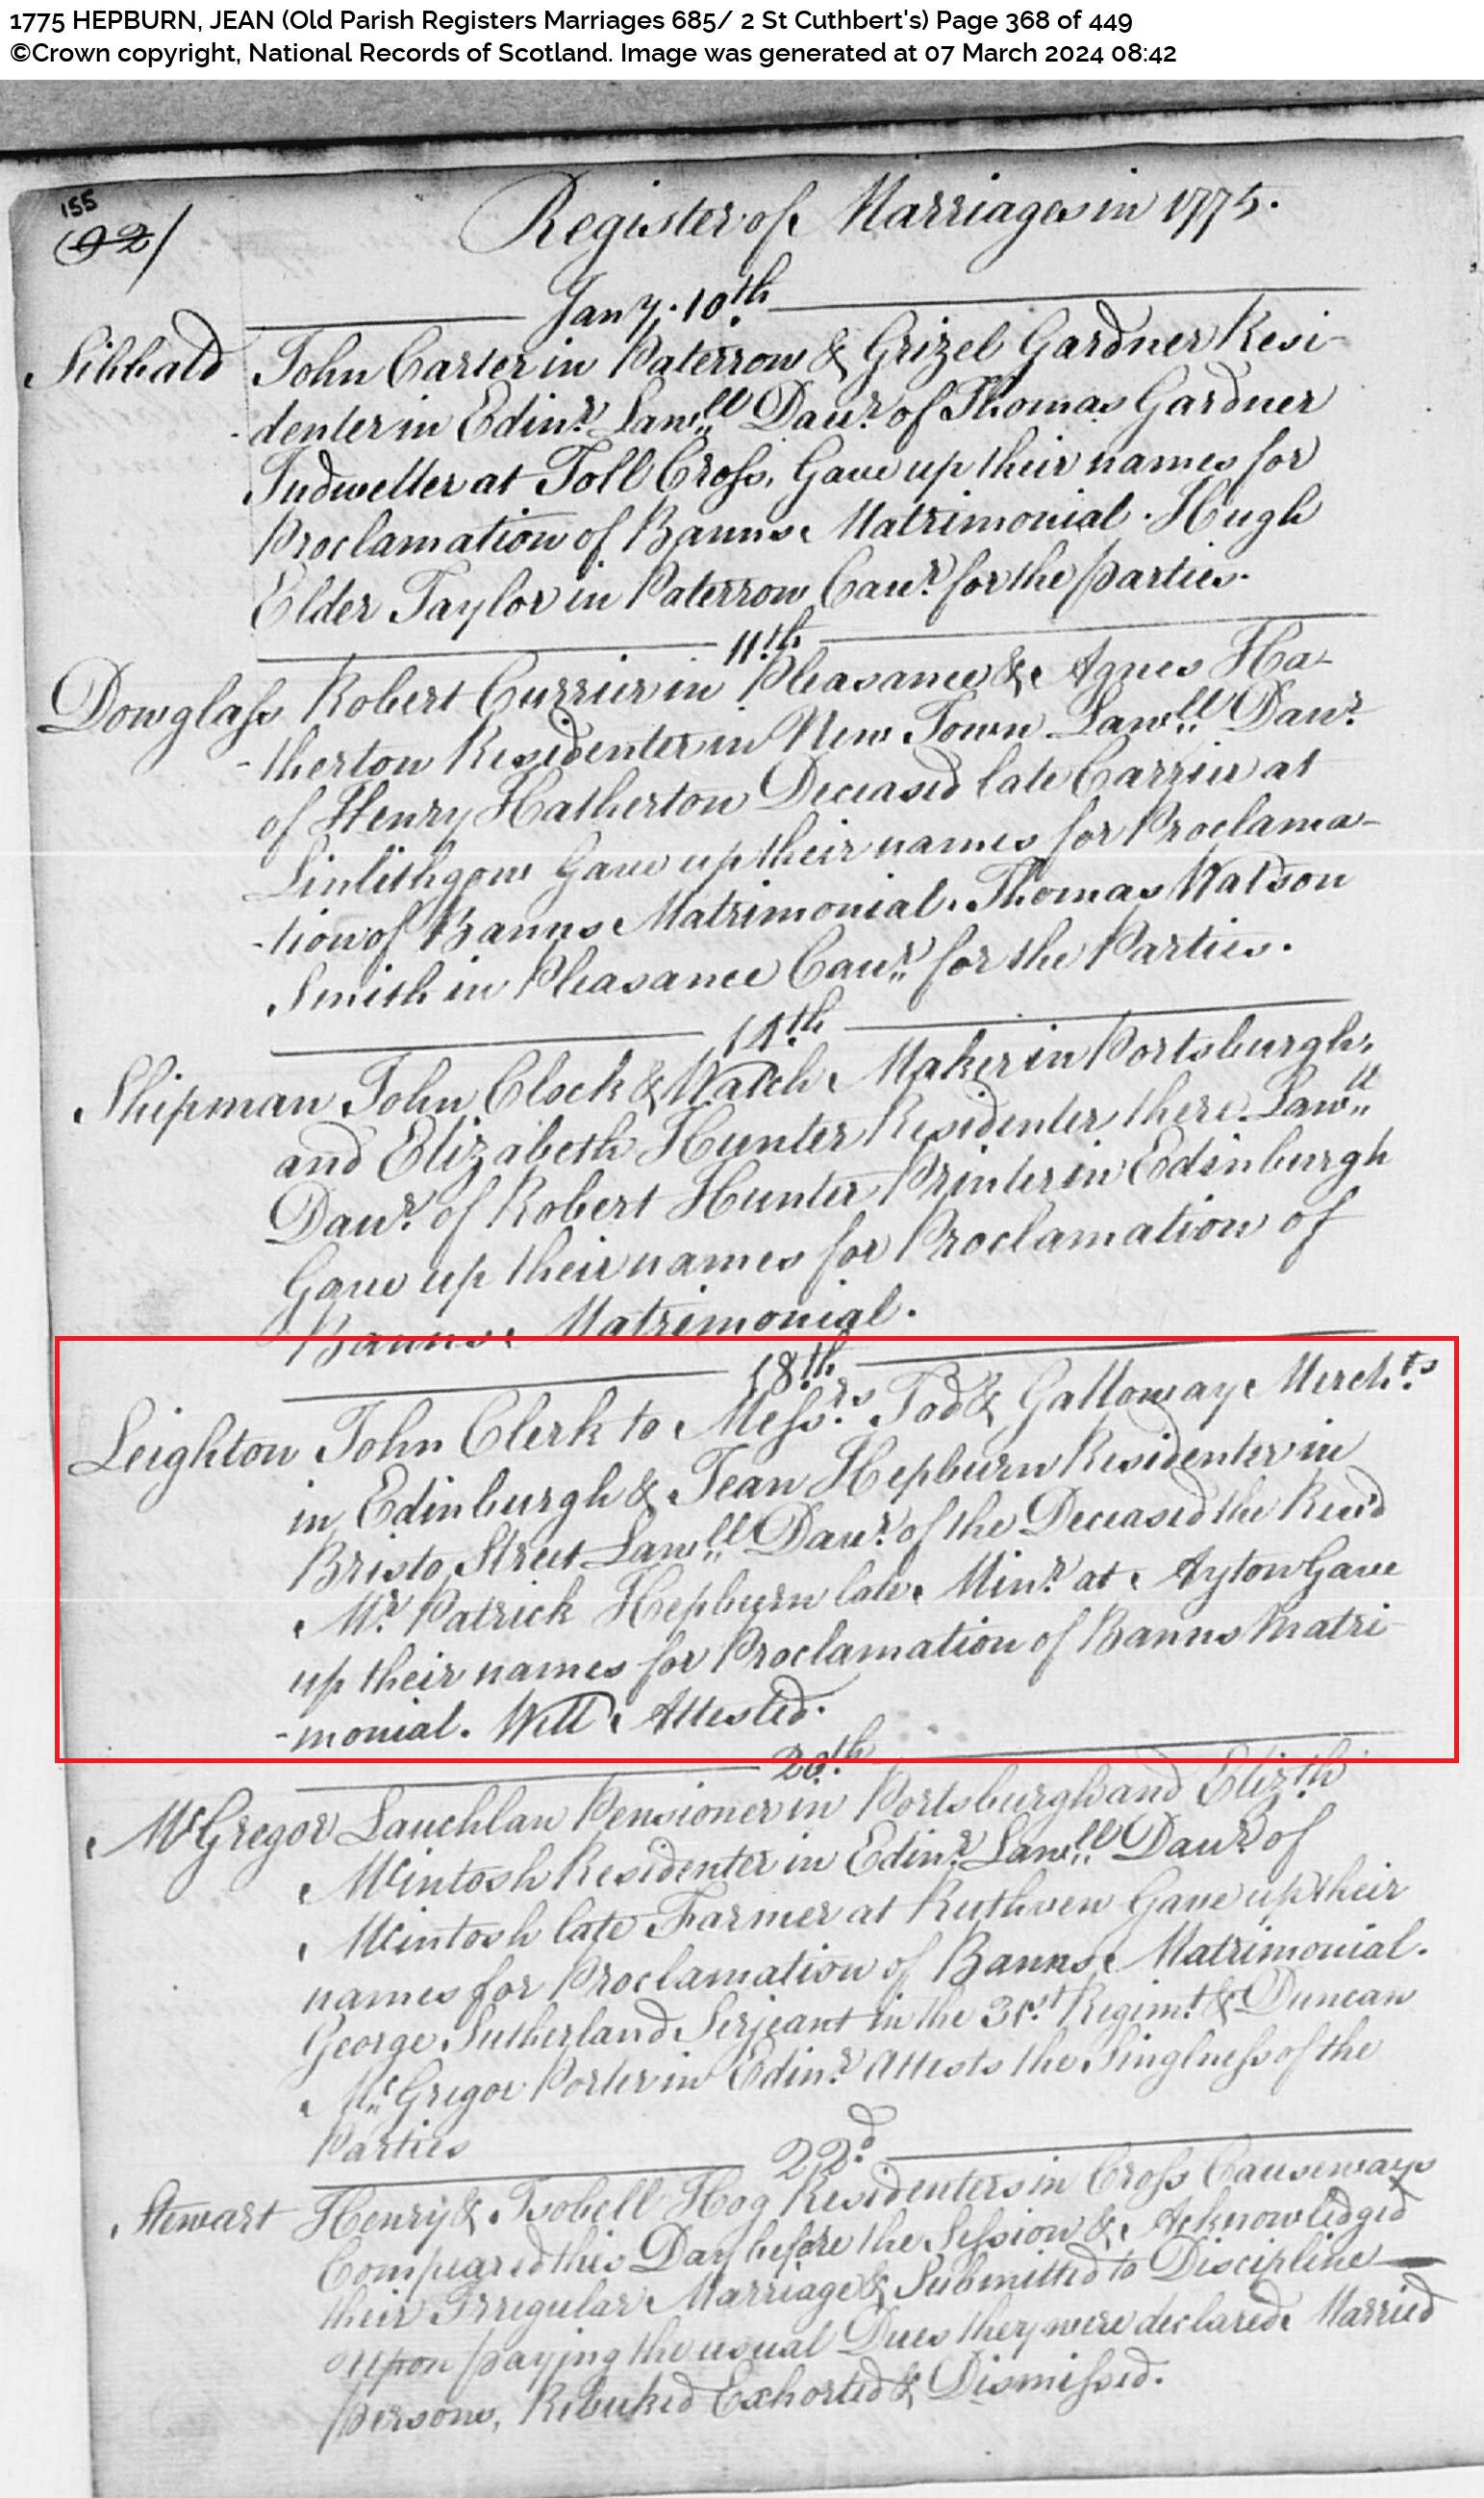 1775 HEPBURN, JEAN (Old Parish Registers Marriages 685/ 2 St Cuthbert's) Page 368 of 449
©Crown copyright, National Records of Scotland. Image was generated at 07 March 2024 08:42
155
(92)/
Register of Marriages in 1775.
Jany. 10th
Sibbald John Carter in Paterrow & Grizel Gardner Resi-
-denter in Edinr. Lawll Daur. of Thomas Gardner
Indweller at Toll Cross, Gave up their names for
Proclamation of Banns Matrimonial. Hugh
Elder Taylor in Paterrow Caur. for the parties.
11th
Dowglass Robert Currier in Pleasance & Agnes Ha-
-therton Residenter in New Town Lawll Daur.
of Henry Hatherton Deceased late Carrier at
Linlithgow Gave up their names for Proclama-
-tion of Banns Matrimonial. Thomas Watson
Smith in Pleasance Caur. for the Parties.
14th
Shipman John Clock & Watch Maker in Portsburgh
and Elizabeth Hunter Residenter there Lawll
Daur. of Robert Hunter Printer in Edinburgh
Gave up their names for Proclamation of
Banns Matrimonial.
18th
Leighton John Clerk to Messrs. Tod & Galloway Mercht.s
in Edinburgh & Jean Hepburn Residenter in
Bristo Street Lawll Daur. of the Deceased the Revd
Mr. Patrick Hepburn late Minr. at Ayton Gave
up their names for Proclamation of Banns Matri-
-monial. Well Attested.
20th
McGregor Lauchlan Pensioner in Portsburgh and Elizth
McIntosh Residenter in Edinr. Lawll Daur. of
McIntosh late Farmer at Ruthven Gave up their
names for Proclamation of Banns Matrimonial.
George Sutherland Serjeant in the 31st Regimt. & Duncan
McGregor Porter in Edinr. Attests the Singlness of the
Parties
22d
Stewart Henry & Isobell Hog Residenters in Cross Causeways
Compeared this Day before the Session & Acknowledged
their Irregular Marriage & Submitted to Discipline
upon paying the usual Dues they were declared Married
persons, Rebuked Exhorted & Dismissed.